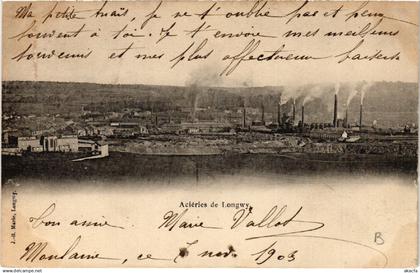 Ma petite Anaïs, Je ne t'oublie pas et pense
souvent à toi. Je t'envoie mes meilleurs
souvenirs et mes plus affectueux baisers
Aciéries de Longwy.
J.-B. Marie, Longwy.
Ton amie Marie Vallot
Mondaine, ce 7 nov. 1903
B